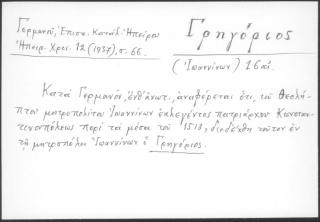 Γερμανοῦ, Ἐπισκ. Κατάλ. Ἠπείρου
Ἠπειρ. Χρον. 12 (1937), σ. 66.
Γρηγόριος
(Ἰωαννίνων) 16 αἰ.
Κατὰ Γερμανόν, ἔνθ' ἀνωτ., ἀναφέρεται ὅτι, τοῦ Θεολή-
πτου μητροπολίτου Ἰωαννίνων ἐκλεγέντος πατριάρχου Κωνσταν-
τινουπόλεως περὶ τὰ μέσα τοῦ 1513, διεδέχθη τοῦτον ἐν
τῇ μητροπόλει Ἰωαννίνων ὁ Γρηγόριος.